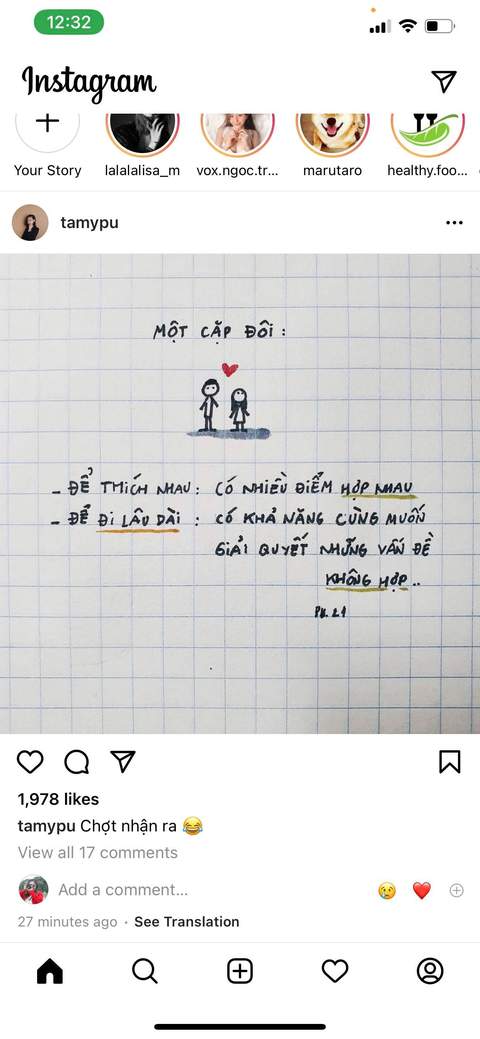 12:32
Instagram
Your Story
lalalalisa_m
vox.ngoc.tr...
marutaro
healthy.foo...
tamypu
MỘT CẶP ĐÔI :
- ĐỂ THÍCH NHAU : CÓ NHIỀU ĐIỂM HỢP NHAU
- ĐỂ ĐI LÂU DÀI : CÓ KHẢ NĂNG CÙNG MUỐN
GIẢI QUYẾT NHỮNG VẤN ĐỀ
KHÔNG HỢP..
1,978 likes
tamypu Chợt nhận ra 😂
View all 17 comments
Add a comment...
27 minutes ago · See Translation